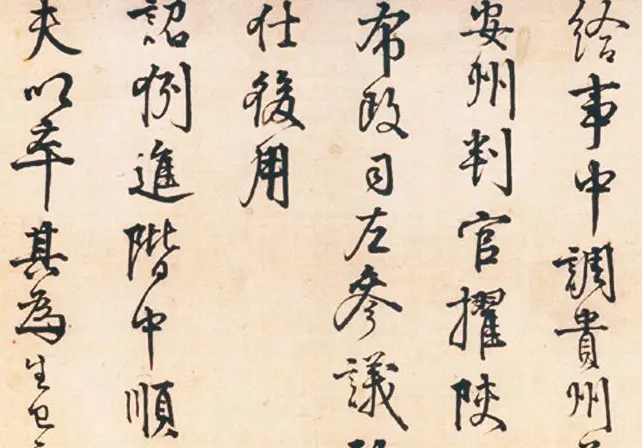 給事中調貴州
安州判官擢陝
布政司左參議
仕後用
詔例進階中順
夫以卒其為生也